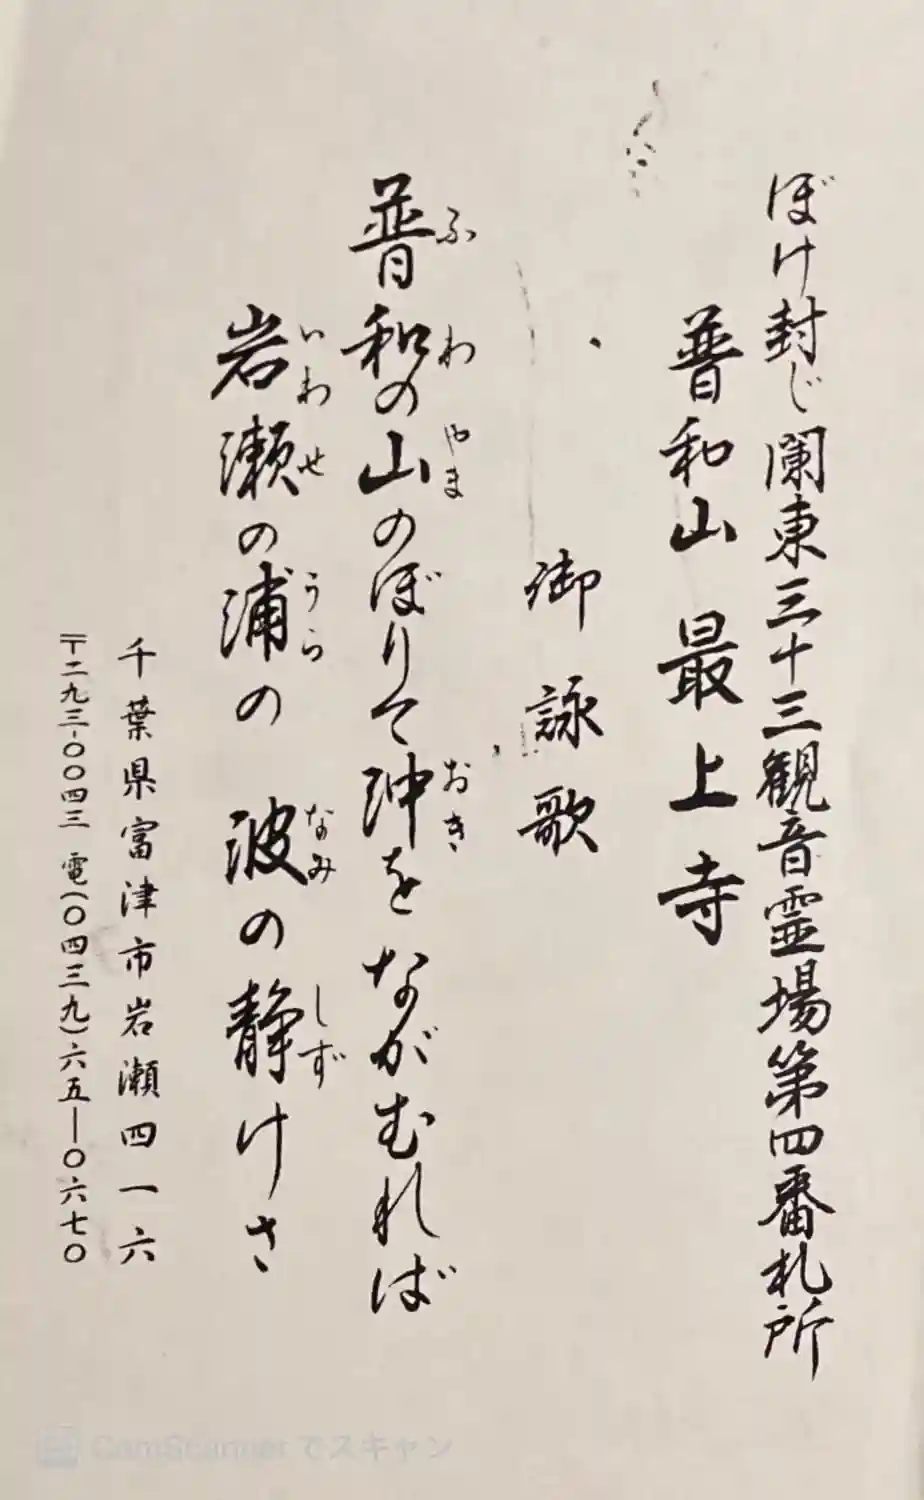 ぼけ封じ関東三十三観音霊場第四番札所
普和山 最上寺
御詠歌
普和の山のぼりて沖をながむれば
ふ わ やま おき
岩瀬の浦の 波の静けさ
いわせ うら なみ しず
千葉県富津市岩瀬四一六
〒二九三-〇〇四三 電(〇四三九)六五―〇六七〇
CamScanner でスキャン